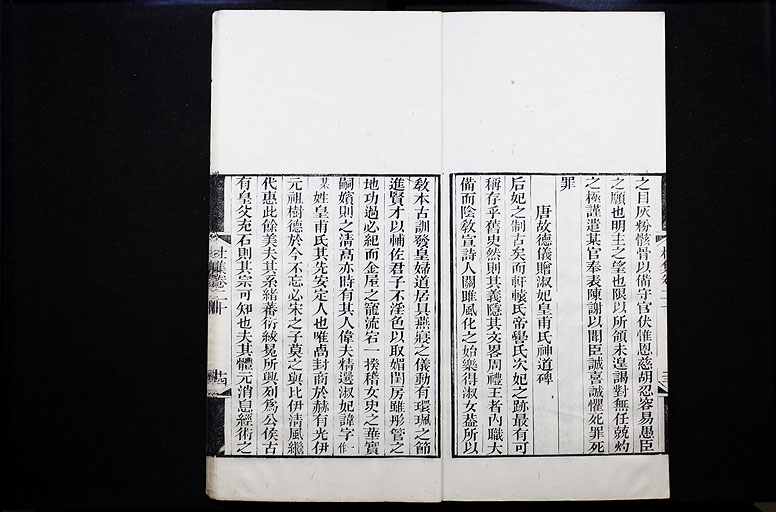 之目灰粉骸骨以備守官伏惟恩慈胡忍容易愚臣
之願也明主之望也限以所領未遑謁對無任兢灼
之極謹遣某官奉表陳謝以聞臣誠喜誠懼死罪死
罪
唐故德儀贈淑妃皇甫氏神道碑
后妃之制古矣而軒轅氏帝嚳氏次妃之跡最有可
稱存乎舊史然則其義隱其文略周禮王者內職大
備而陰敎宣詩人關雎風化之始樂得淑女蓋所以
敎本古訓發皇婦道居具燕寢之儀動有環珮之節
進賢才以輔佐君子不淫色以取媚閨房雖彤管之
地功過必紀而金屋之寵流宕一揆稽女史之華實
嗣嬪則之淸髙亦時有其人偉夫精選淑妃諱字
姓皇甫氏其先安定人也惟卨封商於赫有光伊
元祖樹德於今不忘必宋之子莫之與比伊淸風繼
代惠此餘美夫其系緖蕃衍紱冕所興列爲公侯古
有皇父充石則其宗可知也夫其體元消息經術之
杜集卷二十